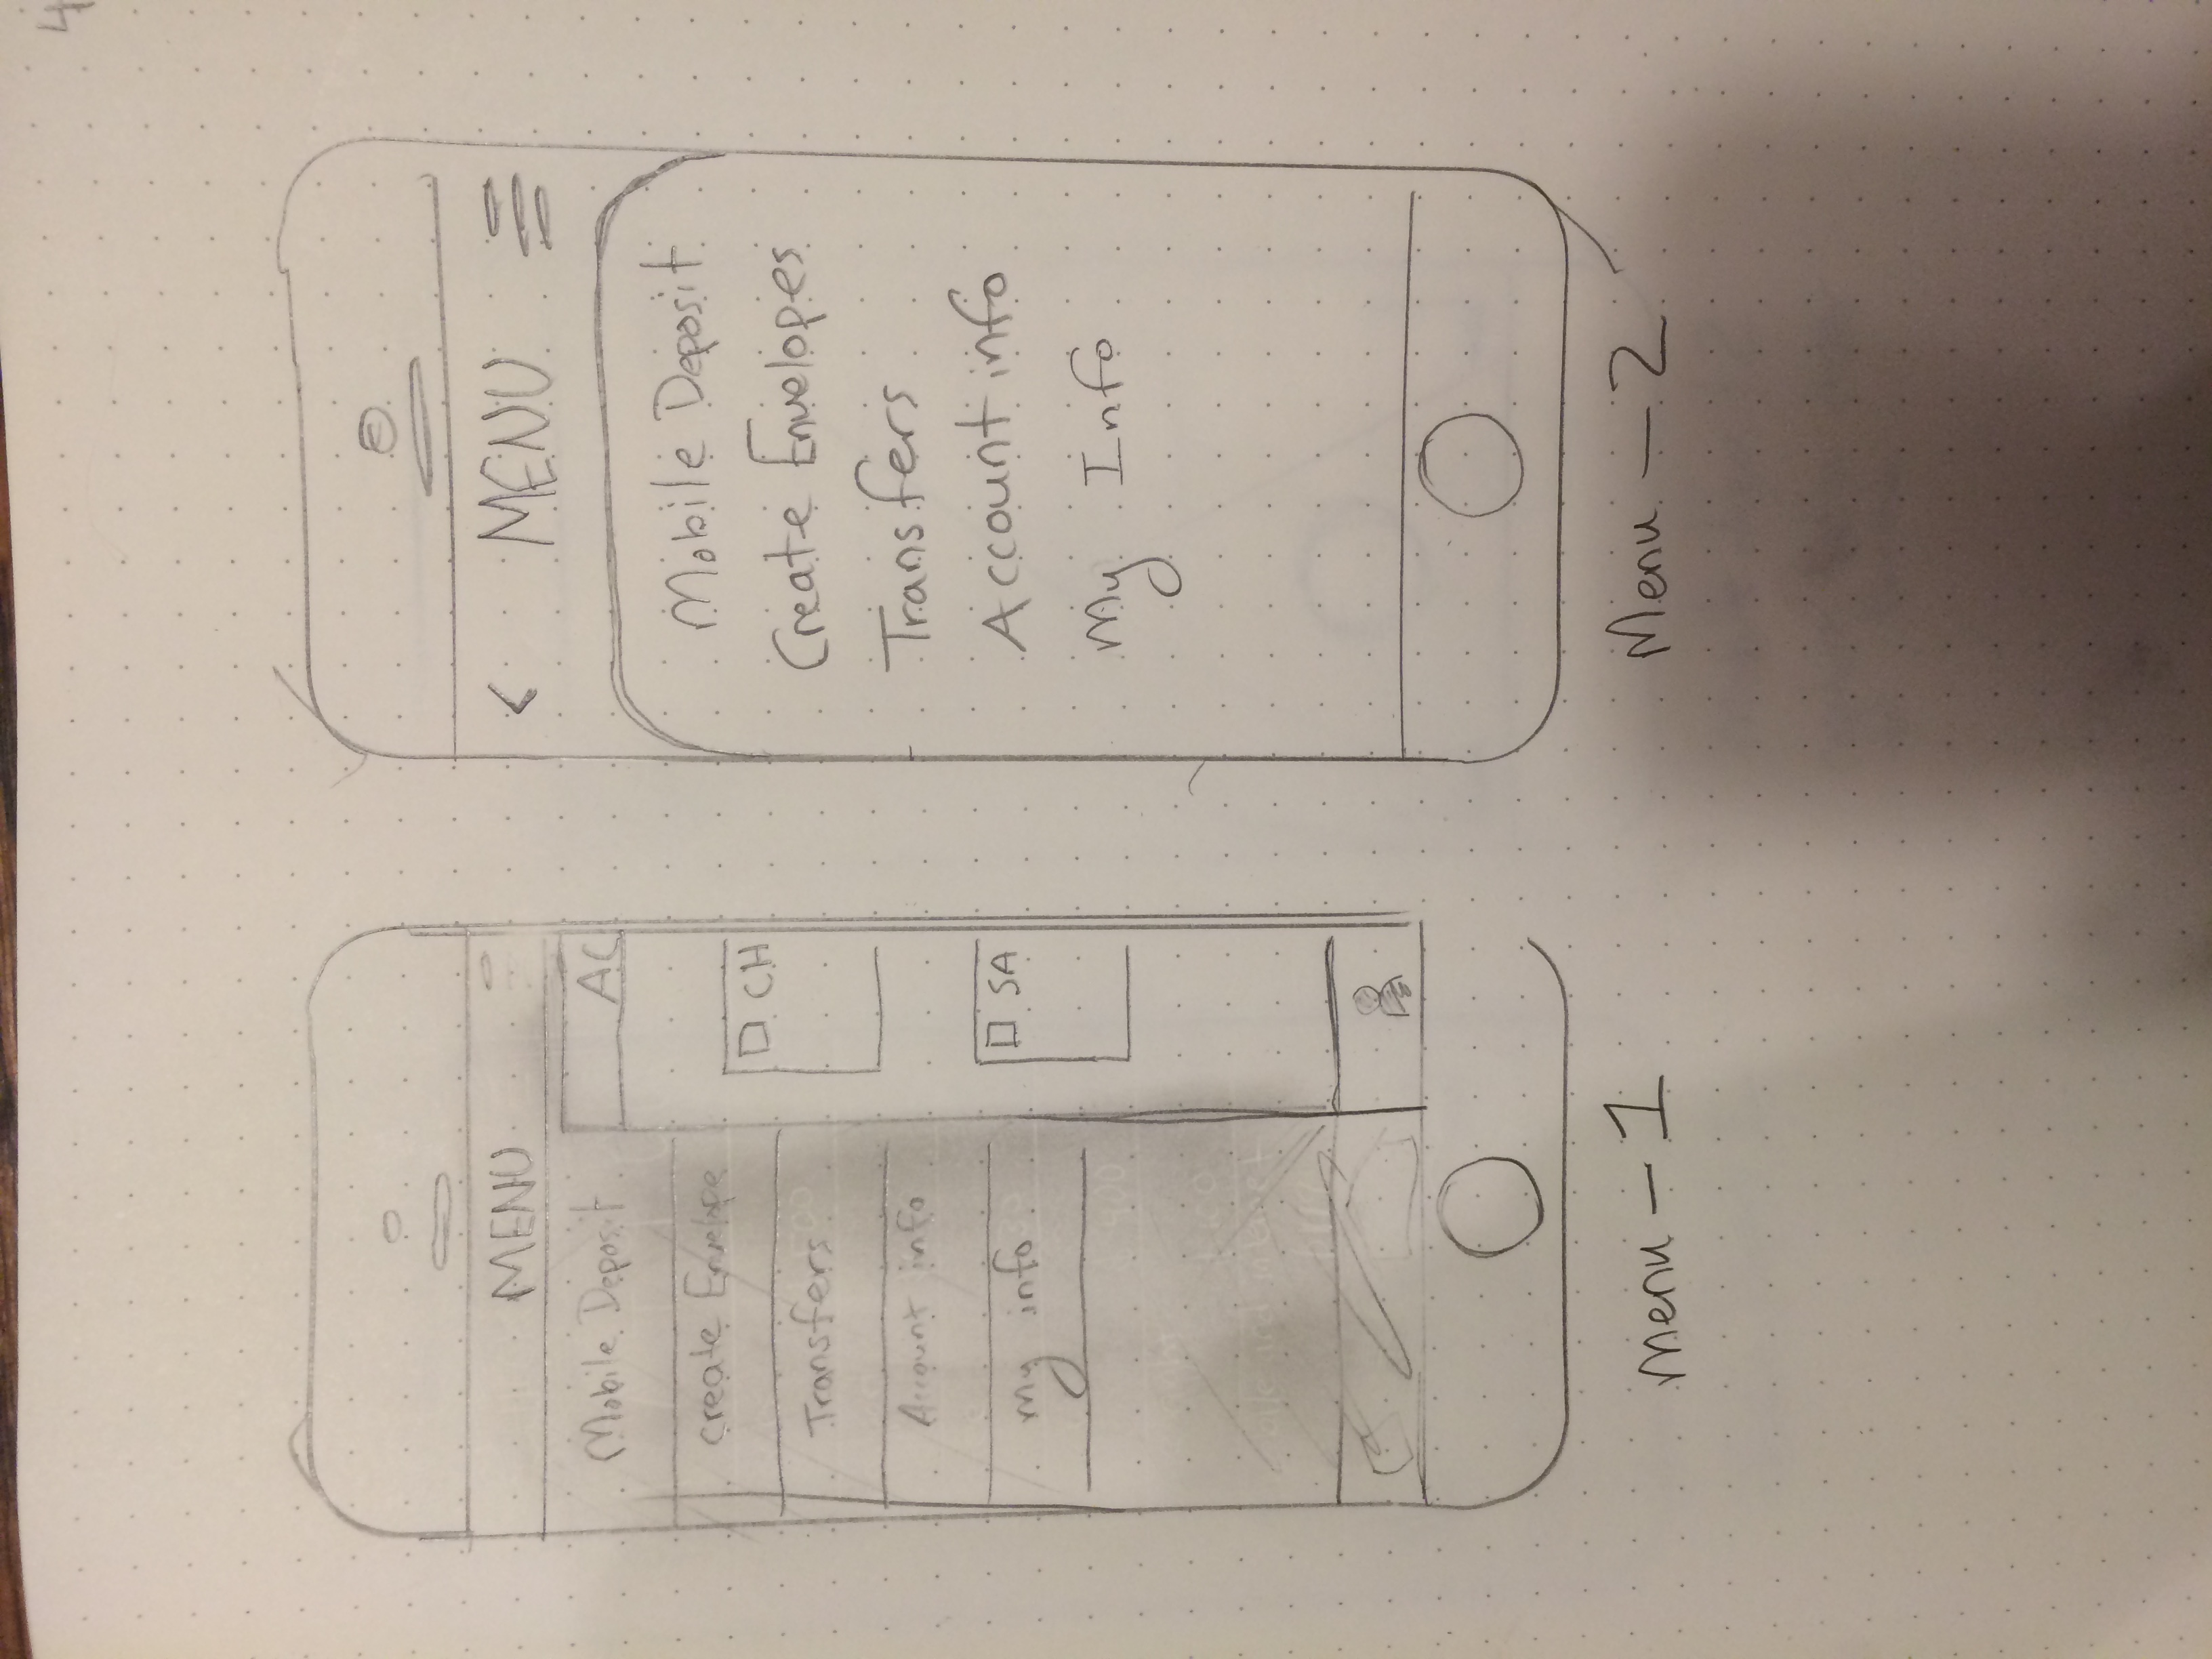 4
MENU
AC
Mobile Deposit
create Envelope
CH
Transfers
Account info
SA
my info
Menu - 1
< MENU
Mobile Deposit
Create Envelopes
Transfers
Account info
My Info
Menu - 2